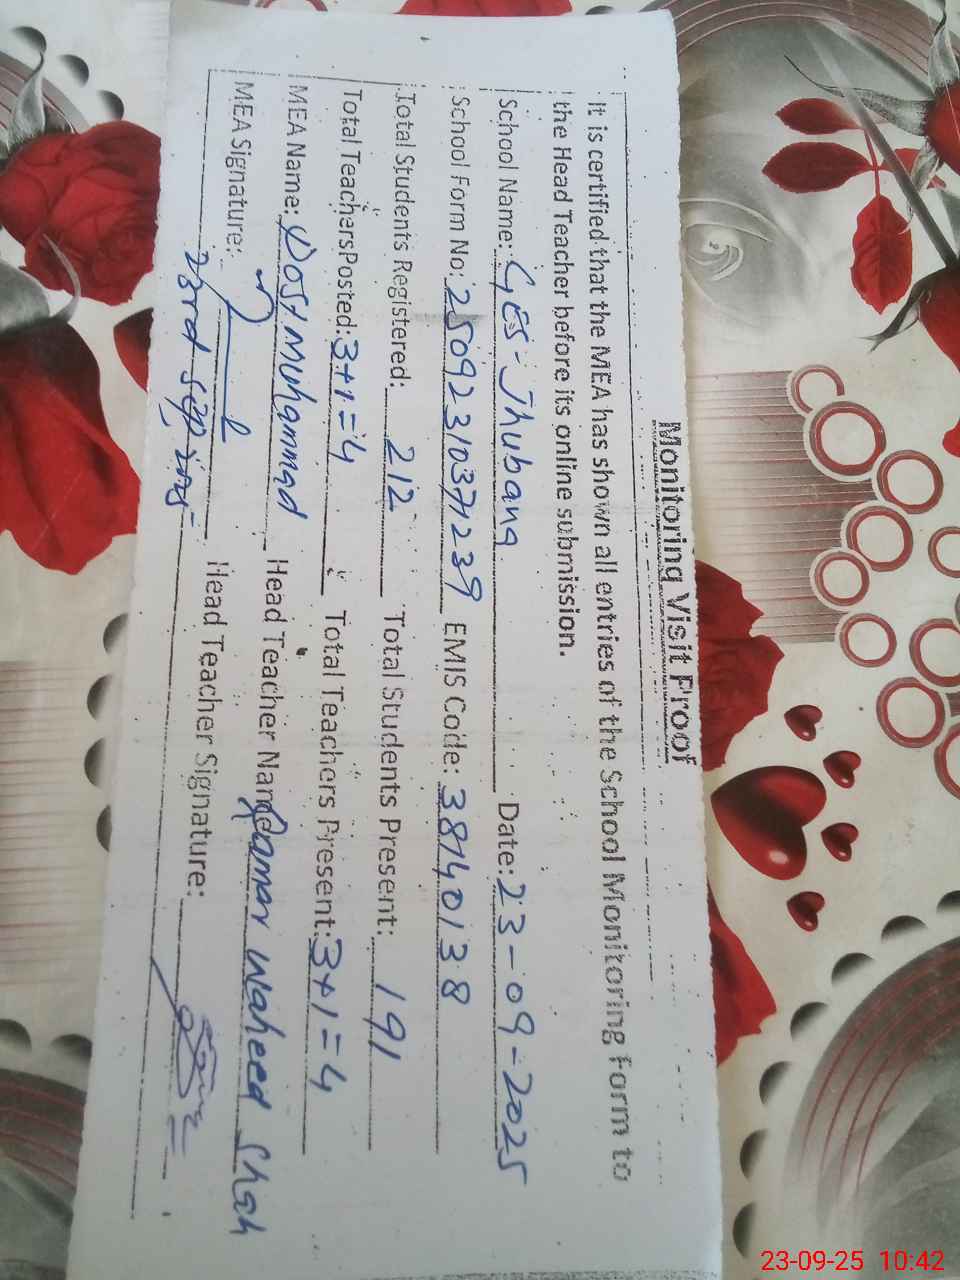 Monitoring Visit Proof
It is certified that the MEA has shown all entries of the School Monitoring Form to
the Head Teacher before its online submission.
School Name: GES-Jhubana Date: 23-09-2025
School Form No: 2509231037239 EMIS Code: 38740138
Total Students Registered: 212 Total Students Present: 191
Total Teachers Posted: 3+1=4 Total Teachers Present: 3+1=4
MEA Name: Dost Muhammad Head Teacher Name: Qamar Waheed Shah
MEA Signature: Head Teacher Signature:
23rd Sep,
23-09-25 10:42